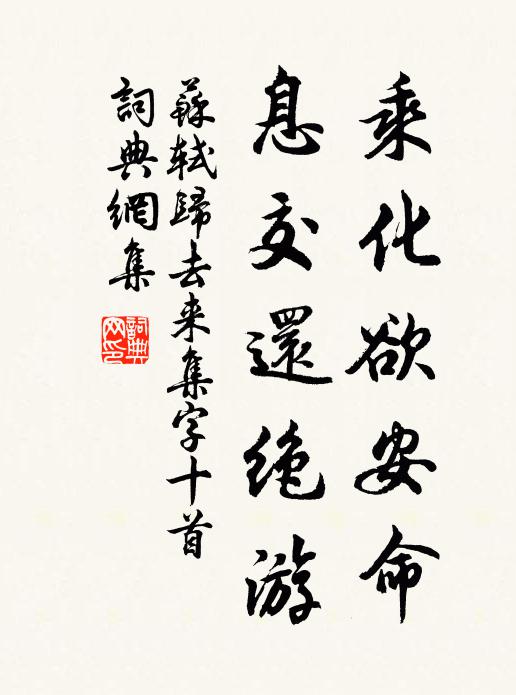 乘化欲安命
息交還絶游
蘇軾歸去来集字十首
詞典網集
詞典網印